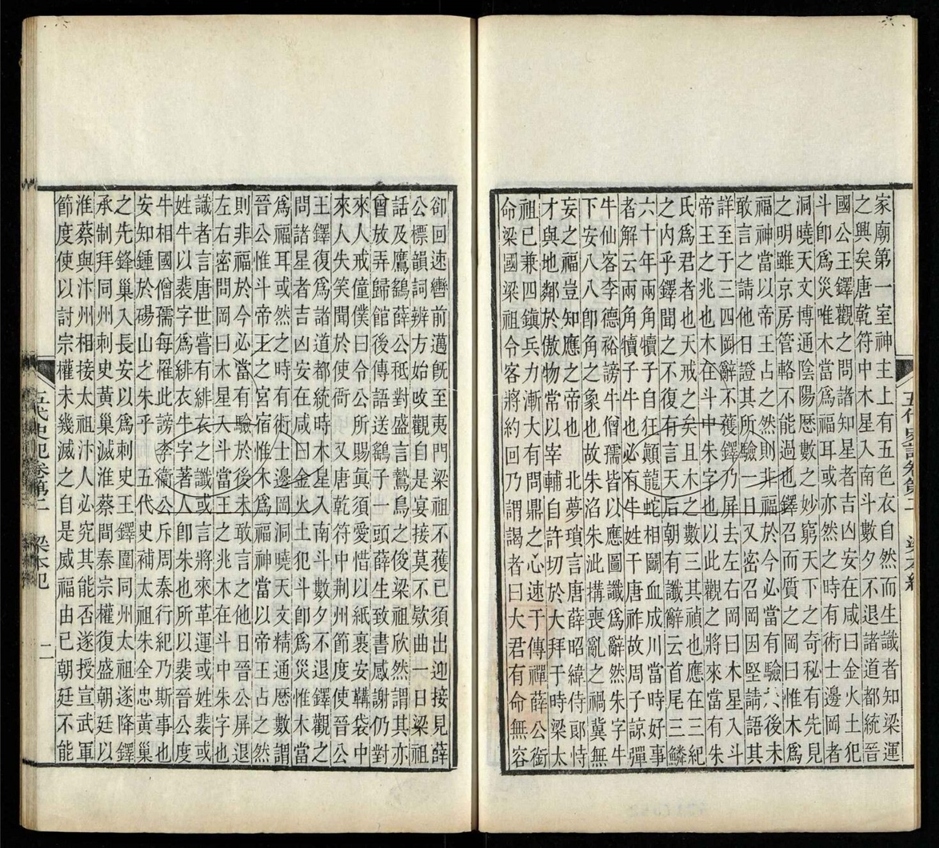 家廟第一室神主上有五色衣自然而生識者知梁運
之興矣唐乾符中木星入南斗數夕不退諸道都統晉
國公王鐸觀之問諸知星者吉凶安在咸曰金火土犯
斗卽爲災唯木當爲福耳或亦然之時有術士邊岡者
洞曉天文博通陰陽厯數之妙窮天下之奇秘有先見
之明雖京房管輅不能過也鐸召而質之岡曰惟木爲
福神當以帝王占之然則非福於今必當有驗於後未
敢言之請他日證其所驗一日又密召岡因堅請語其
詳至于三四岡辭不獲鐸乃屏去左右岡曰木星入斗
帝王之兆也木在斗中朱字也以此觀之將來當有朱
氏爲君者也天戒之矣且木之數三其禎也應在三紀
之內乎鐸聞之不復有言天后朝有讖辭云首尾三鱗
六十年兩角犢子自狂顚龍蛇相鬭血成川當時好事
者解云兩角犢子牛也必有牛姓干唐祚故周子諒彈
牛仙客李德裕謗牛僧孺皆以應圖讖爲辭然朱字牛
下安八八卽角之象也故朱滔朱泚搆喪亂之禍冀無
妄之福豈知應之帝也 北夢瑣言唐薛昭緯侍郎恃
才與地鄰於傲物常以宰輔自許切於大拜于時梁太
祖已兼四鎭兵力漸大有問鼎之心速于傳禪薛公銜
命梁國梁祖令客將約回乃謂謁者曰大君有命無容
五代史記卷第二 梁本紀
卻回速轡前邁旣至夷門梁祖不獲已須出迎接見薛
公標韻詞辨方始改觀自是宴接莫不欵曲一日梁祖
話及鷹鷂薛公秖對盛言鷙鳥之俊梁祖欣然謂其亦
曾放弄歸館後傳語送鷂子一頭薛生致書感謝仍對
來人戒僮僕曰令公所賜眞須愛惜可以紙裹安鞲袋中
來人失笑聞於使衙 又唐乾符中荆州節度使晉公
王鐸復爲諸道都統時木星入南斗數夕不退鐸觀之
問諸星者吉凶安在咸曰金火土犯斗卽爲災惟木當
爲福耳或然之時有術士邊岡洞曉天文精通厯數謂
晉公惟斗帝王之宮宿惟木爲福神當以帝王占之然
則非福於今必當有驗於後未敢言之他日晉公屏退
左右密問岡曰木星入斗當王之兆木在斗中朱字也
識者言唐世嘗有緋衣之讖或言將來革運或姓裴或
姓牛以裴字爲緋衣牛字著人卽朱也所以裴晉公度
牛相國僧孺每罹此謗李衞公斥周秦行紀乃斯事也
安知鍾於碭山之朱乎 五代史補太祖朱全忠黃巢
之先鋒巢入長安以爲刺史王鐸圍同州太祖遂降鐸
承制拜同州刺史黃巢滅淮蔡間秦宗權復盛朝廷以
淮蔡與汴州相接太祖汴人必究其能否遂授宣武軍
節度使以討宗權未幾滅之自是威福由己朝廷不能
五代史記卷第二 梁本紀 二